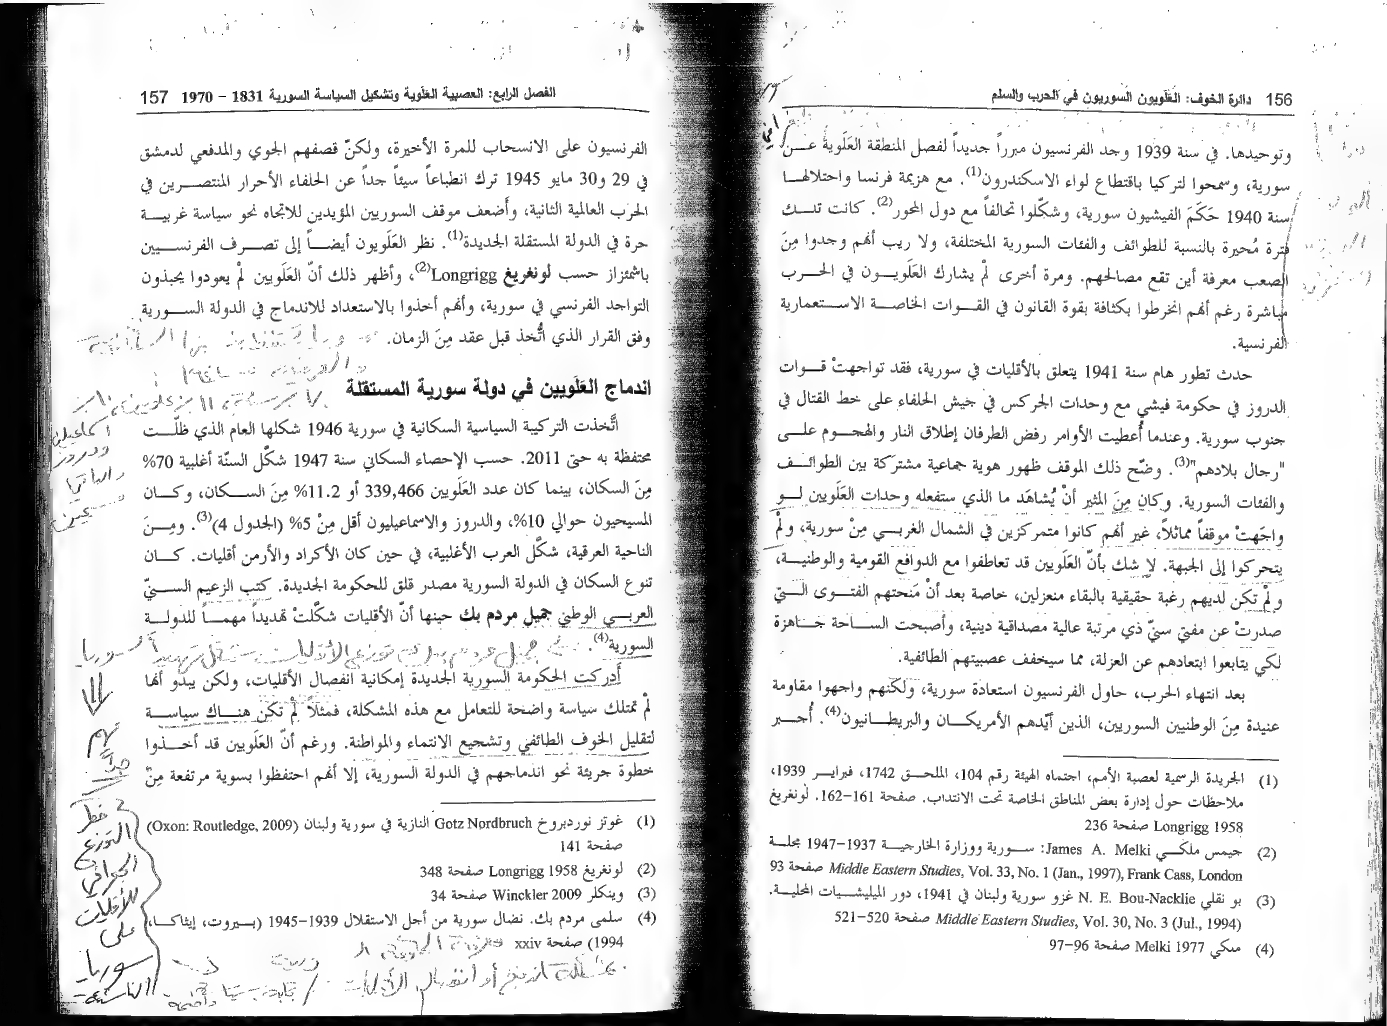 156 دائرة الخوف: العَلَويون السوريون في الحرب والسلم
وتوحيدها. في سنة 1939 وجد الفرنسيون مبرراً جديداً لفصل المنطقة العَلَوية عـــن
سورية، وسمحوا لتركيا باقتطاع لواء الاسكندرون(1). مع هزيمة فرنسا واحتلالهـا
سنة 1940 حَكَمَ الفيشيون سورية، وشكّلوا تحالفاً مع دول المحور(2). كانت تلـــك
فترة مُحيرة بالنسبة للطوائف والفئات السورية المختلفة، ولا ريب أنهم وجدوا مِنَ
الصعب معرفة أين تقع مصالحهم. ومرة أخرى لمْ يشارك العَلَويـــون في الحـــرب
مباشرة رغم أنهم انخرطوا بكثافة بقوة القانون في القوات الخاصـــة الاســـتعمارية
الفرنسية.
حدث تطور هام سنة 1941 يتعلق بالأقليات في سورية، فقد تواجهتْ قـــوات
الدروز في حكومة فيشي مع وحدات الجركس في جيش الحلفاء على خط القتال في
جنوب سورية. وعندما أُعطيت الأوامر رفض الطرفان إطلاق النار والهجـــوم علـــى
"رجال بلادهم"(3). وضّح ذلك الموقف ظهور هوية جماعية مشتركة بين الطوائـــف
والفئات السورية. وكان مِنَ المثير أنْ يُشاهَد ما الذي ستفعله وحدات العَلَويين لـــو
واجَهتْ موقفاً مماثلاً، غير أنهم كانوا متمركزين في الشمال الغربـي مِنْ سورية، ولمْ
يتحركوا إلى الجبهة. لا شك بأنّ العَلَويين قد تعاطفوا مع الدوافع القومية والوطنيـــة،
ولمْ تكن لديهم رغبة حقيقية بالبقاء منعزلين، خاصة بعد أنْ مَنحتهم الفتـــوى الـــتيّ
صدرتْ عن مفتي سنيّ ذي مرتبة عالية مصداقية دينية، وأصبحت الساحة جـــاهزة
لكي يتابعوا ابتعادهم عن العزلة، مما سيخفف عصبيتهم الطائفية.
بعد انتهاء الحرب، حاول الفرنسيون استعادة سورية، ولكنّهم واجهوا مقاومة
عنيدة مِنَ الوطنيين السوريين، الذين أيّدهم الأمريكـــان والبريطـــانيون(4). أُجـــبر
(1) الجريدة الرسمية لعصبة الأمم، اجتماه الهيئة رقم 104، الملحـــق 1742، فبرايـــر 1939،
ملاحظات حول إدارة بعض المناطق الخاصة تحت الانتداب. صفحة 161-162. لونغريغ
Longrigg 1958 صفحة 236
(2) جيمس ملكـــي James A. Melki: ســـورية ووزارة الخارجيـــة 1937-1947 مجلـــة
Middle Eastern Studies, Vol. 33, No. 1 (Jan., 1997), Frank Cass, London صفحة 93
(3) بو نقلي N. E. Bou-Nacklie غزو سورية ولبنان في 1941، دور الميليشـــيات المحليـــة.
Middle Eastern Studies, Vol. 30, No. 3 (Jul., 1994) صفحة 520-521
(4) ملكي Melki 1977 صفحة 96-97
الفصل الرابع: العصبية العَلَوية وتشكيل السياسة السورية 1831 - 1970 157
الفرنسيون على الانسحاب للمرة الأخيرة، ولكنّ قصفهم الجوي والمدفعي لدمشق
في 29 و30 مايو 1945 ترك انطباعاً سيئاً جداً عن الحلفاء الأحرار المنتصـــرين في
الحرب العالمية الثانية، وأَضعف موقف السوريين المؤيدين للاتجاه نحو سياسة غربيـــة
حرة في الدولة المستقلة الجديدة(1). نظر العَلَويون أيضـــاً إلى تصـــرف الفرنســـيين
باشمئزاز حسب لونغريغ Longrigg(2)، وأظهر ذلك أنّ العَلَويين لمْ يعودوا يحبذون
التواجد الفرنسي في سورية، وأنهم أخذوا بالاستعداد للاندماج في الدولة الســـورية
وفق القرار الذي اتُّخذ قبل عقد مِنَ الزمان.
اندماج العَلَويين في دولة سورية المستقلة
اتَّخذت التركيبة السياسية السكانية في سورية 1946 شكلها العام الذي ظلّـــت
محتفظة به حتى 2011. حسب الإحصاء السكاني سنة 1947 شكّل السنّة أغلبية 70%
مِنَ السكان، بينما كان عدد العَلَويين 339,466 أو 11.2% مِنَ الســـكان، وكـــان
المسيحيون حوالي 10%، والدروز والاسماعيليون أقل مِنْ 5% (الجدول 4)(3). ومِـــنَ
الناحية العرقية، شكّل العرب الأغلبية، في حين كان الأكراد والأرمن أقليات. كـــان
تنوع السكان في الدولة السورية مصدر قلق للحكومة الجديدة. كتب الزعيم الســـنيّ
العربـي الوطني جميل مردم بك حينها أنّ الأقليات شكّلتْ تهديداً مهمـــاً للدولـــة
السورية(4).
أدركت الحكومة السورية الجديدة إمكانية انفصال الأقليات، ولكن يبدو أنها
لمْ تمتلك سياسة واضحة للتعامل مع هذه المشكلة، فمثلاً لمْ تكن هنـــاك سياســـة
لتقليل الخوف الطائفي وتشجيع الانتماء والمواطنة. ورغم أنّ العَلَويين قد أخـــذوا
خطوة جريئة نحو اندماجهم في الدولة السورية، إلا أنهم احتفظوا بسوية مرتفعة مِنْ
(1) غوتز نوردبروخ Gotz Nordbruch النازية في سورية ولبنان (Oxon: Routledge, 2009)
صفحة 141
(2) لونغريغ Longrigg 1958 صفحة 348
(3) وينكلر Winckler 2009 صفحة 34
(4) سلمى مردم بك. نضال سورية من أجل الاستقلال 1939-1945 (بـــيروت، إيثاكـــا،
1994) صفحة xxiv
خطر
التوزع
الجغرافي
للأقليات
على
سوريا
الناشئة